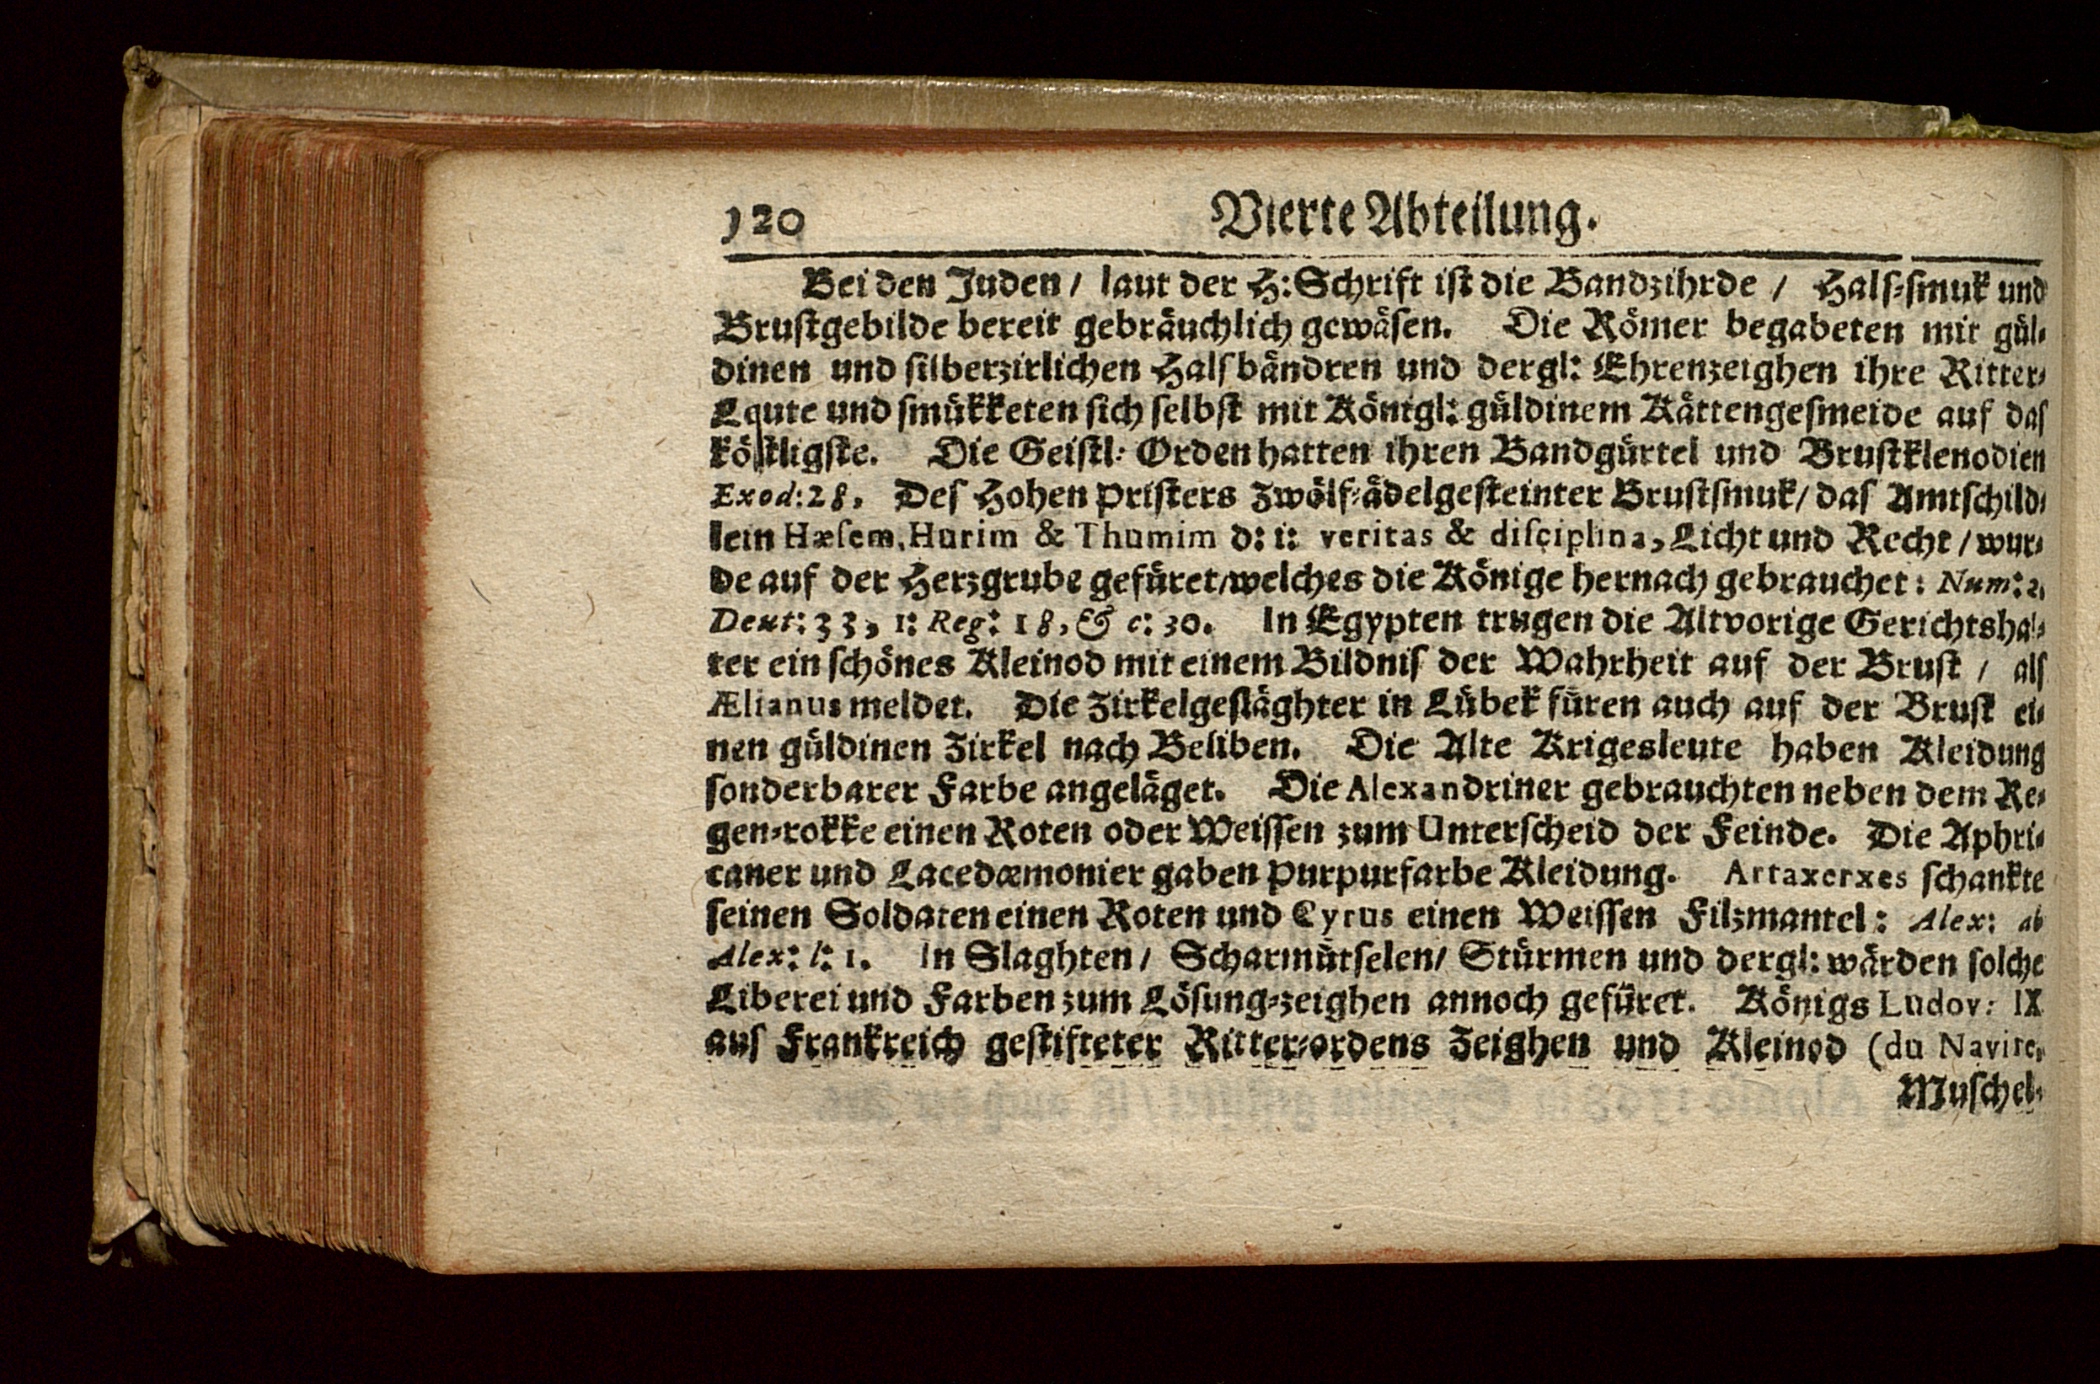 120 Vierte Abteilung.
Bei den Juden / laut der H: Schrift ist die Bandzihrde / Hals-smuk und
Brustgebilde bereit gebräuchlich gewäsen. Die Römer begabeten mit gül-
dinen und silberzirlichen Halsbändren und dergl: Ehrenzeighen ihre Ritter-
Leute und smükketen sich selbst mit Königl: güldinem Kättengesmeide auf das
köstligste. Die Geistl: Orden hatten ihren Bandgürtel und Brustklenodien
Exod: 28, Des Hohen Pristers Zwölf-ädelgesteinter Brustsmuk / das Amtschild-
lein Hæsem, Hurim & Thumim d: i: veritas & disciplina, Licht und Recht / wur-
de auf der Herzgrube gefüret / welches die Könige hernach gebrauchet: Num: 2,
Deut: 33, 1: Reg: 18, & c: 30. In Egypten trugen die Altvorige Gerichtshal-
ter ein schönes Kleinod mit einem Bildnis der Wahrheit auf der Brust / als
Ælianus meldet. Die Zirkelgesläghter in Lübek füren auch auf der Brust ei-
nen güldinen Zirkel nach Beliben. Die Alte Krigesleute haben Kleidung
sonderbarer Farbe angeläget. Die Alexandriner gebrauchten neben dem Re-
gen-rokke einen Roten oder Weissen zum Unterscheid der Feinde. Die Aphri-
caner und Lacedæmonier gaben Purpurfarbe Kleidung. Artaxerxes schankte
seinen Soldaten einen Roten und Cyrus einen Weissen Filzmantel: Alex: ab
Alex: l: 1. In Slaghten / Scharmütselen / Stürmen und dergl: wärden solche
Liberei und Farben zum Lösung-zeighen annoch gefüret. Königs Ludov: IX
aus Frankreich gestifteter Ritter-ordens Zeighen und Kleinod (du Navire,
Muschel-